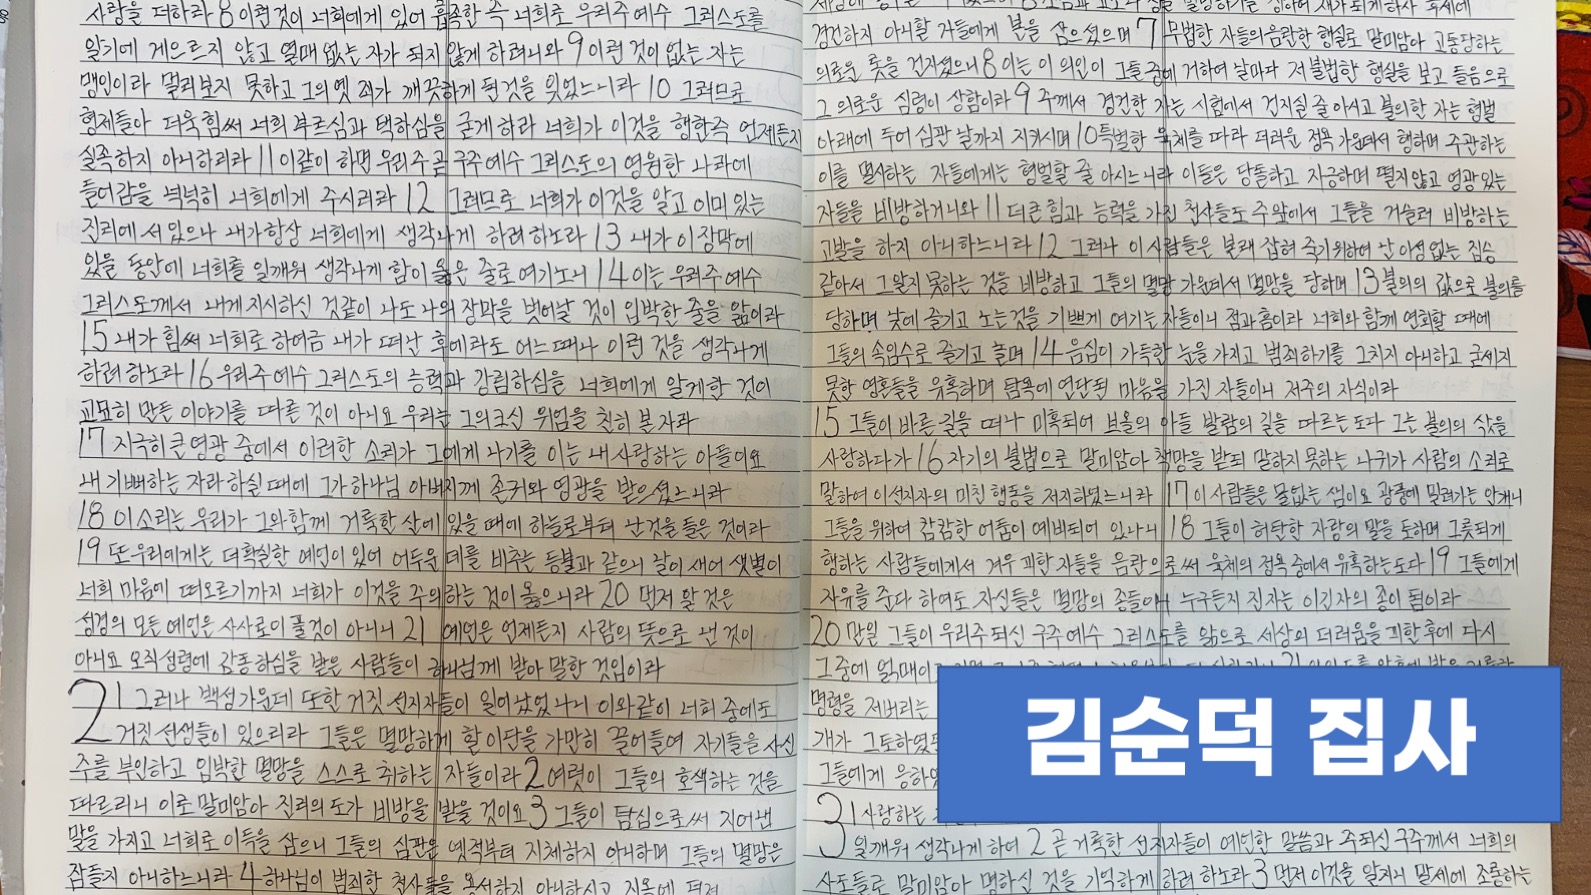 사랑을 더하라 8 이런 것이 너희에게 있어 흡족한 즉 너희로 우리 주 예수 그리스도를
알기에 게으르지 않고 열매 없는 자가 되지 않게 하려니와 9 이런 것이 없는 자는
맹인이라 멀리 보지 못하고 그의 옛 죄가 깨끗하게 된 것을 잊었느니라 10 그러므로
형제들아 더욱 힘써 너희 부르심과 택하심을 굳게 하라 너희가 이것을 행한즉 언제든지
실족하지 아니하리라 11 이같이 하면 우리 주 곧 구주 예수 그리스도의 영원한 나라에
들어감을 넉넉히 너희에게 주시리라 12 그러므로 너희가 이것을 알고 이미 있는
진리에 서 있으나 내가 항상 너희에게 생각나게 하려 하노라 13 내가 이 장막에
있을 동안에 너희를 일깨워 생각나게 함이 옳은 줄로 여기노니 14 이는 우리 주 예수
그리스도께서 내게 지시하신 것 같이 나도 나의 장막을 벗어날 것이 임박한 줄을 앎이라
15 내가 힘써 너희로 하여금 내가 떠난 후에라도 어느 때나 이런 것을 생각나게
하려 하노라 16 우리 주 예수 그리스도의 능력과 강림하심을 너희에게 알게 한 것이
교묘히 만든 이야기를 따른 것이 아니요 우리는 그의 크신 위엄을 친히 본 자라
17 지극히 큰 영광 중에서 이러한 소리가 그에게 나기를 이는 내 사랑하는 아들이요
내 기뻐하는 자라 하실 때에 그가 하나님 아버지께 존귀와 영광을 받으셨느니라
18 이 소리는 우리가 그와 함께 거룩한 산에 있을 때에 하늘로부터 난 것을 들은 것이라
19 또 우리에게는 더 확실한 예언이 있어 어두운 데를 비추는 등불과 같으니 날이 새어 샛별이
너희 마음에 떠오르기까지 너희가 이것을 주의하는 것이 옳으니라 20 먼저 알 것은
성경의 모든 예언은 사사로이 풀 것이 아니니 21 예언은 언제든지 사람의 뜻으로 낸 것이
아니요 오직 성령에 감동하심을 받은 사람들이 하나님께 받아 말한 것임이라
2 1 그러나 백성 가운데 또한 거짓 선지자들이 일어났었나니 이와 같이 너희 중에도
거짓 선생들이 있으리라 그들은 멸망하게 할 이단을 가만히 끌어들여 자기들을 사신
주를 부인하고 임박한 멸망을 스스로 취하는 자들이라 2 여럿이 그들의 호색하는 것을
따르리니 이로 말미암아 진리의 도가 비방을 받을 것이요 3 그들이 탐심으로써 지어낸
말을 가지고 너희로 이득을 삼으니 그들의 심판은 옛적부터 지체하지 아니하며 그들의 멸망은
잠들지 아니하느니라 4 하나님이 범죄한 천사들을 용서하지 아니하시고 지옥에 던져
경건하지 아니할 자들에게 본을 삼으셨으며 7 무법한 자들의 음란한 행실로 말미암아 고통당하는
의로운 롯을 건지셨으니 8 이는 이 의인이 그들 중에 거하여 날마다 저 불법한 행실을 보고 들음으로
그 의로운 심령이 상함이라 9 주께서 경건한 자는 시험에서 건지실 줄 아시고 불의한 자는 형벌
아래에 두어 심판 날까지 지키시며 10 특별한 육체를 따라 더러운 정욕 가운데서 행하며 주관하는
이를 멸시하는 자들에게는 형벌할 줄 아시느니라 이들은 당돌하고 자긍하며 떨지 않고 영광 있는
자들을 비방하거니와 11 더 큰 힘과 능력을 가진 천사들도 주 앞에서 그들을 거슬러 비방하는
고발을 하지 아니하느니라 12 그러나 이 사람들은 본래 잡혀 죽기 위하여 난 이성 없는 짐승
같아서 그 알지 못하는 것을 비방하고 그들의 멸망 가운데서 멸망을 당하며 13 불의의 값으로 불의를
당하며 낮에 즐기고 노는 것을 기쁘게 여기는 자들이니 점과 흠이라 너희와 함께 연회할 때에
그들의 속임수로 즐기고 놀며 14 음심이 가득한 눈을 가지고 범죄하기를 그치지 아니하고 굳세지
못한 영혼들을 유혹하며 탐욕에 연단된 마음을 가진 자들이니 저주의 자식이라
15 그들이 바른 길을 떠나 미혹되어 브올의 아들 발람의 길을 따르는도다 그는 불의의 삯을
사랑하다가 16 자기의 불법으로 말미암아 책망을 받되 말하지 못하는 나귀가 사람의 소리로
말하여 이 선지자의 미친 행동을 저지하였느니라 17 이 사람들은 물 없는 샘이요 광풍에 밀려가는 안개니
그들을 위하여 캄캄한 어둠이 예비되어 있나니 18 그들이 허탄한 자랑의 말을 토하며 그릇되게
행하는 사람들에게서 겨우 피한 자들을 음란으로써 육체의 정욕 중에서 유혹하는도다 19 그들에게
자유를 준다 하여도 자신들은 멸망의 종들이니 누구든지 진 자는 이긴 자의 종이 됨이라
20 만일 그들이 우리 주 되신 구주 예수 그리스도를 앎으로 세상의 더러움을 피한 후에 다시
그 중에 얽매이고
명령을 저버리는
개가 그 토하였던
그들에게 응하였
3 1 사랑하는
일깨워 생각나게 하여 2 곧 거룩한 선지자들이 예언한 말씀과 주 되신 구주께서 너희의
사도들로 말미암아 명하신 것을 기억하게 하려 하노라 3 먼저 이것을 알지니 말세에 조롱하는
김순덕 집사